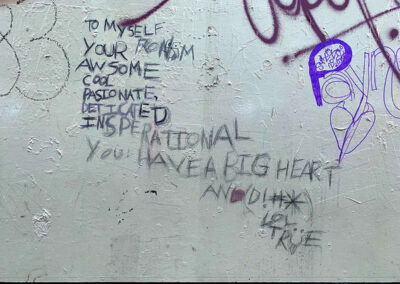 TO MYSELF
YOUR
AWSOME
COOL
PASIONATE,
DETICATED
INSPERATIONAL
YOU HAVE A BIG HEART
AND
LOL
TRUE